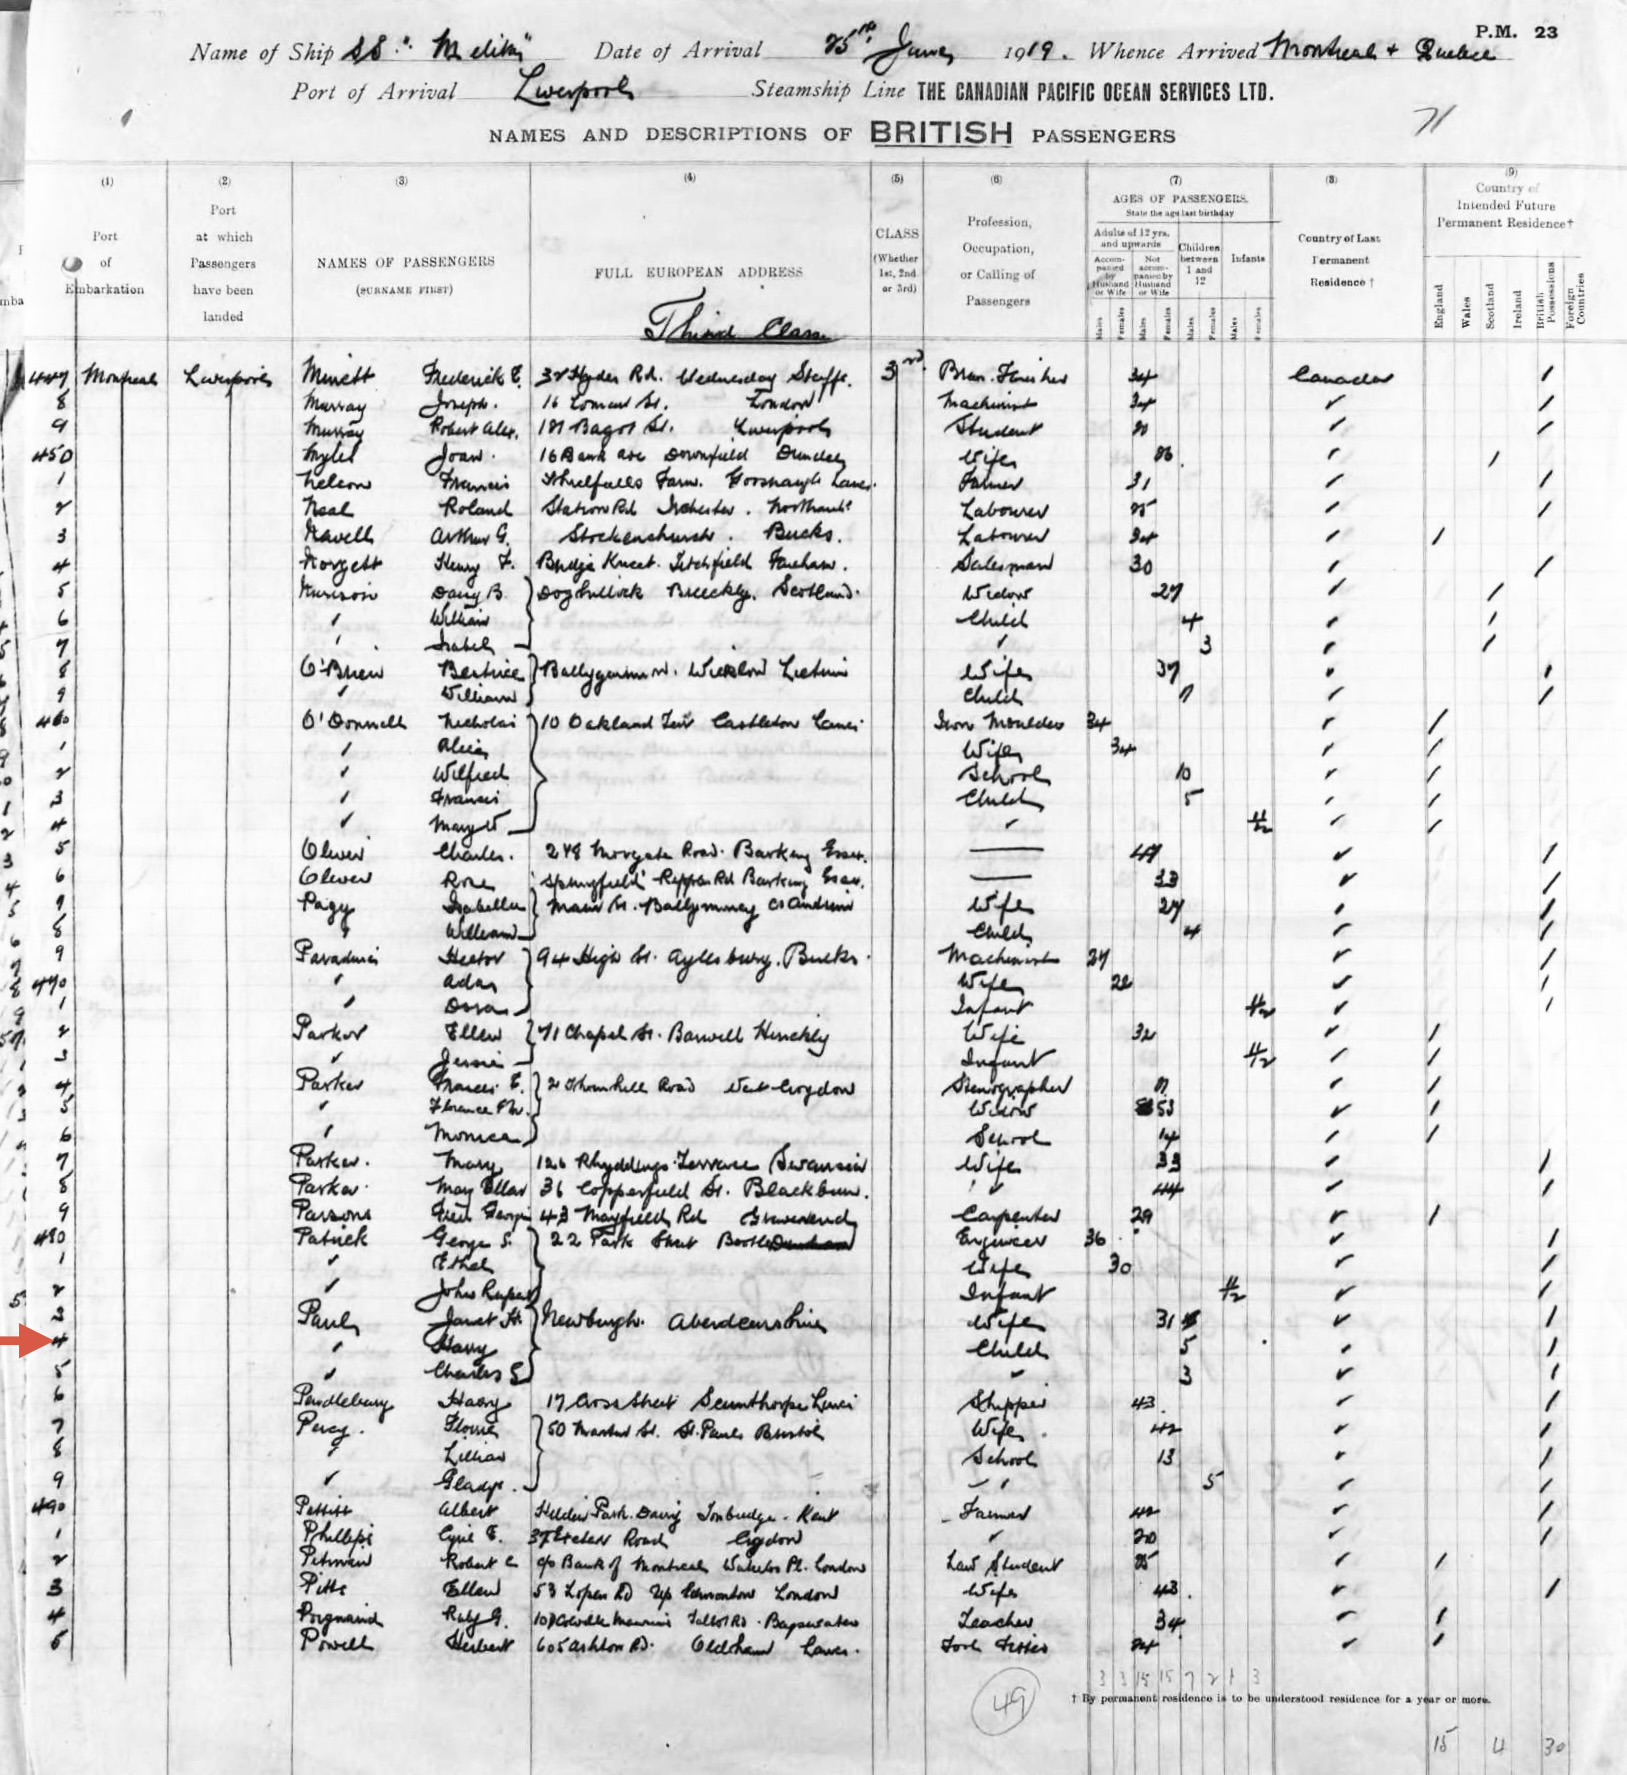 P.M. 23
Name of Ship SS. "Melita" Date of Arrival 25th June 1919. Whence Arrived Montreal & Quebec
Port of Arrival Liverpool Steamship Line THE CANADIAN PACIFIC OCEAN SERVICES LTD.
71
NAMES AND DESCRIPTIONS OF BRITISH PASSENGERS
(1) (2) (3) (4) (5) (6) (7) (8) (9)
Port of Embarkation
Port at which Passengers have been landed
NAMES OF PASSENGERS (SURNAME FIRST)
FULL EUROPEAN ADDRESS
CLASS (Whether 1st, 2nd or 3rd)
Profession, Occupation, or Calling of Passengers
AGES OF PASSENGERS.
State the age last birthday
Adults of 12 yrs. and upwards
Accompanied by Husband or Wife
Not accompanied by Husband or Wife
Children between 1 and 12
Infants
Males Females Males Females Males Females Males Females
Country of Last Permanent Residence †
Country of Intended Future Permanent Residence†
England Wales Scotland Ireland British Possessions Foreign Countries
Third Class
447 Montreal Liverpool Minett Frederick E. 32 Hyder Rd. Wednesday Staffs. 3rd 34 Canada
8 Murray Joseph. 16 St. London Machinist 34
9 Murray Robert Alex. 181 Bagot St. Liverpool Student
450 Myles Joan. 16 Bank Ave Downfield Dundee Wife
1 Nelson Francis Farm. Goosnargh Lancs. Farmer 31
2 Neal Roland Station Rd Irchester. Northants Labourer 25
3 Navell Arthur G. Stockenchurch. Bucks. Labourer 24
4 Norgett Henry F. Titchfield Fareham. Salesman 30
5 Daisy B. Scotland. Widow 27
6 " William Child 4
7 " Isabel " 3
8 O'Brien Beatrice Wicklow Wife 37
9 " William Child 7
460 O'Donnell Nicholas 10 Oakland Terr Castleton Lancs. Iron Moulder 34
1 " Alice Wife 34
2 " Wilfred School 10
3 " Francis Child 5
4 " Mary "
5 Oliver Charles. 248 Movgate Road. Barking Essex. 49
6 Oliver Rose 'Springfield' Ripple Rd Barking Essex. 33
7 Isabella Main St. Ballymoney Co Antrim Wife 27
8 " William Child 4
9 Hector 94 High St. Aylesbury. Bucks. Machinist 27
470 " Ada Wife 22
1 " Infant
2 Parker Ellen 71 Chapel St. Barwell Hinckly Wife 32
3 " Jessie Infant
4 Parker E. 2 Thornhill Road West Croydon Stenographer
5 " Florence Widow 53
6 " Monica School 14
7 Parker. Mary 126 Rhyddings Terrace Swansea Wife 33
8 Parker. May Ellen 36 Copperfield St. Blackburn. " 44
9 Parsons George 43 Mayfield Rd Gravesend Carpenter 29
480 Patrick George S. 22 Park Street Bootle Engineer 36
1 " Ethel Wife 30
2 " John Rupert Infant
3 Paul Janet H. Newburgh. Aberdeenshire Wife 31
4 " Harry Child 5
5 " Charles G " 3
6 Pendlebury Harry 17 Cross Street Scunthorpe Lincs Shipper 43
7 Percy. Florrie 50 St. St. Pauls Bristol Wife 42
8 " Lillian School 13
9 " Gladys. " 5
490 Pettitt Albert Hilden Park. Tonbridge. Kent Farmer 42
1 Phillips Cyril E. 37 Exeter Road Croydon " 20
2 Pitman Robert C c/o Bank of Montreal Waterloo Pl. London Law Student 25
3 Pitts Ellen 53 Lopen Rd Up Edmonton London Wife 43
4 Poignand Ruby G. Mansions Talbot Rd. Bayswater Teacher 34
5 Powell Herbert 605 Ashton Rd. Oldham Lancs. 24
3 3 15 15 7 2 1 3
49
† By permanent residence is to be understood residence for a year or more.
15 4 30